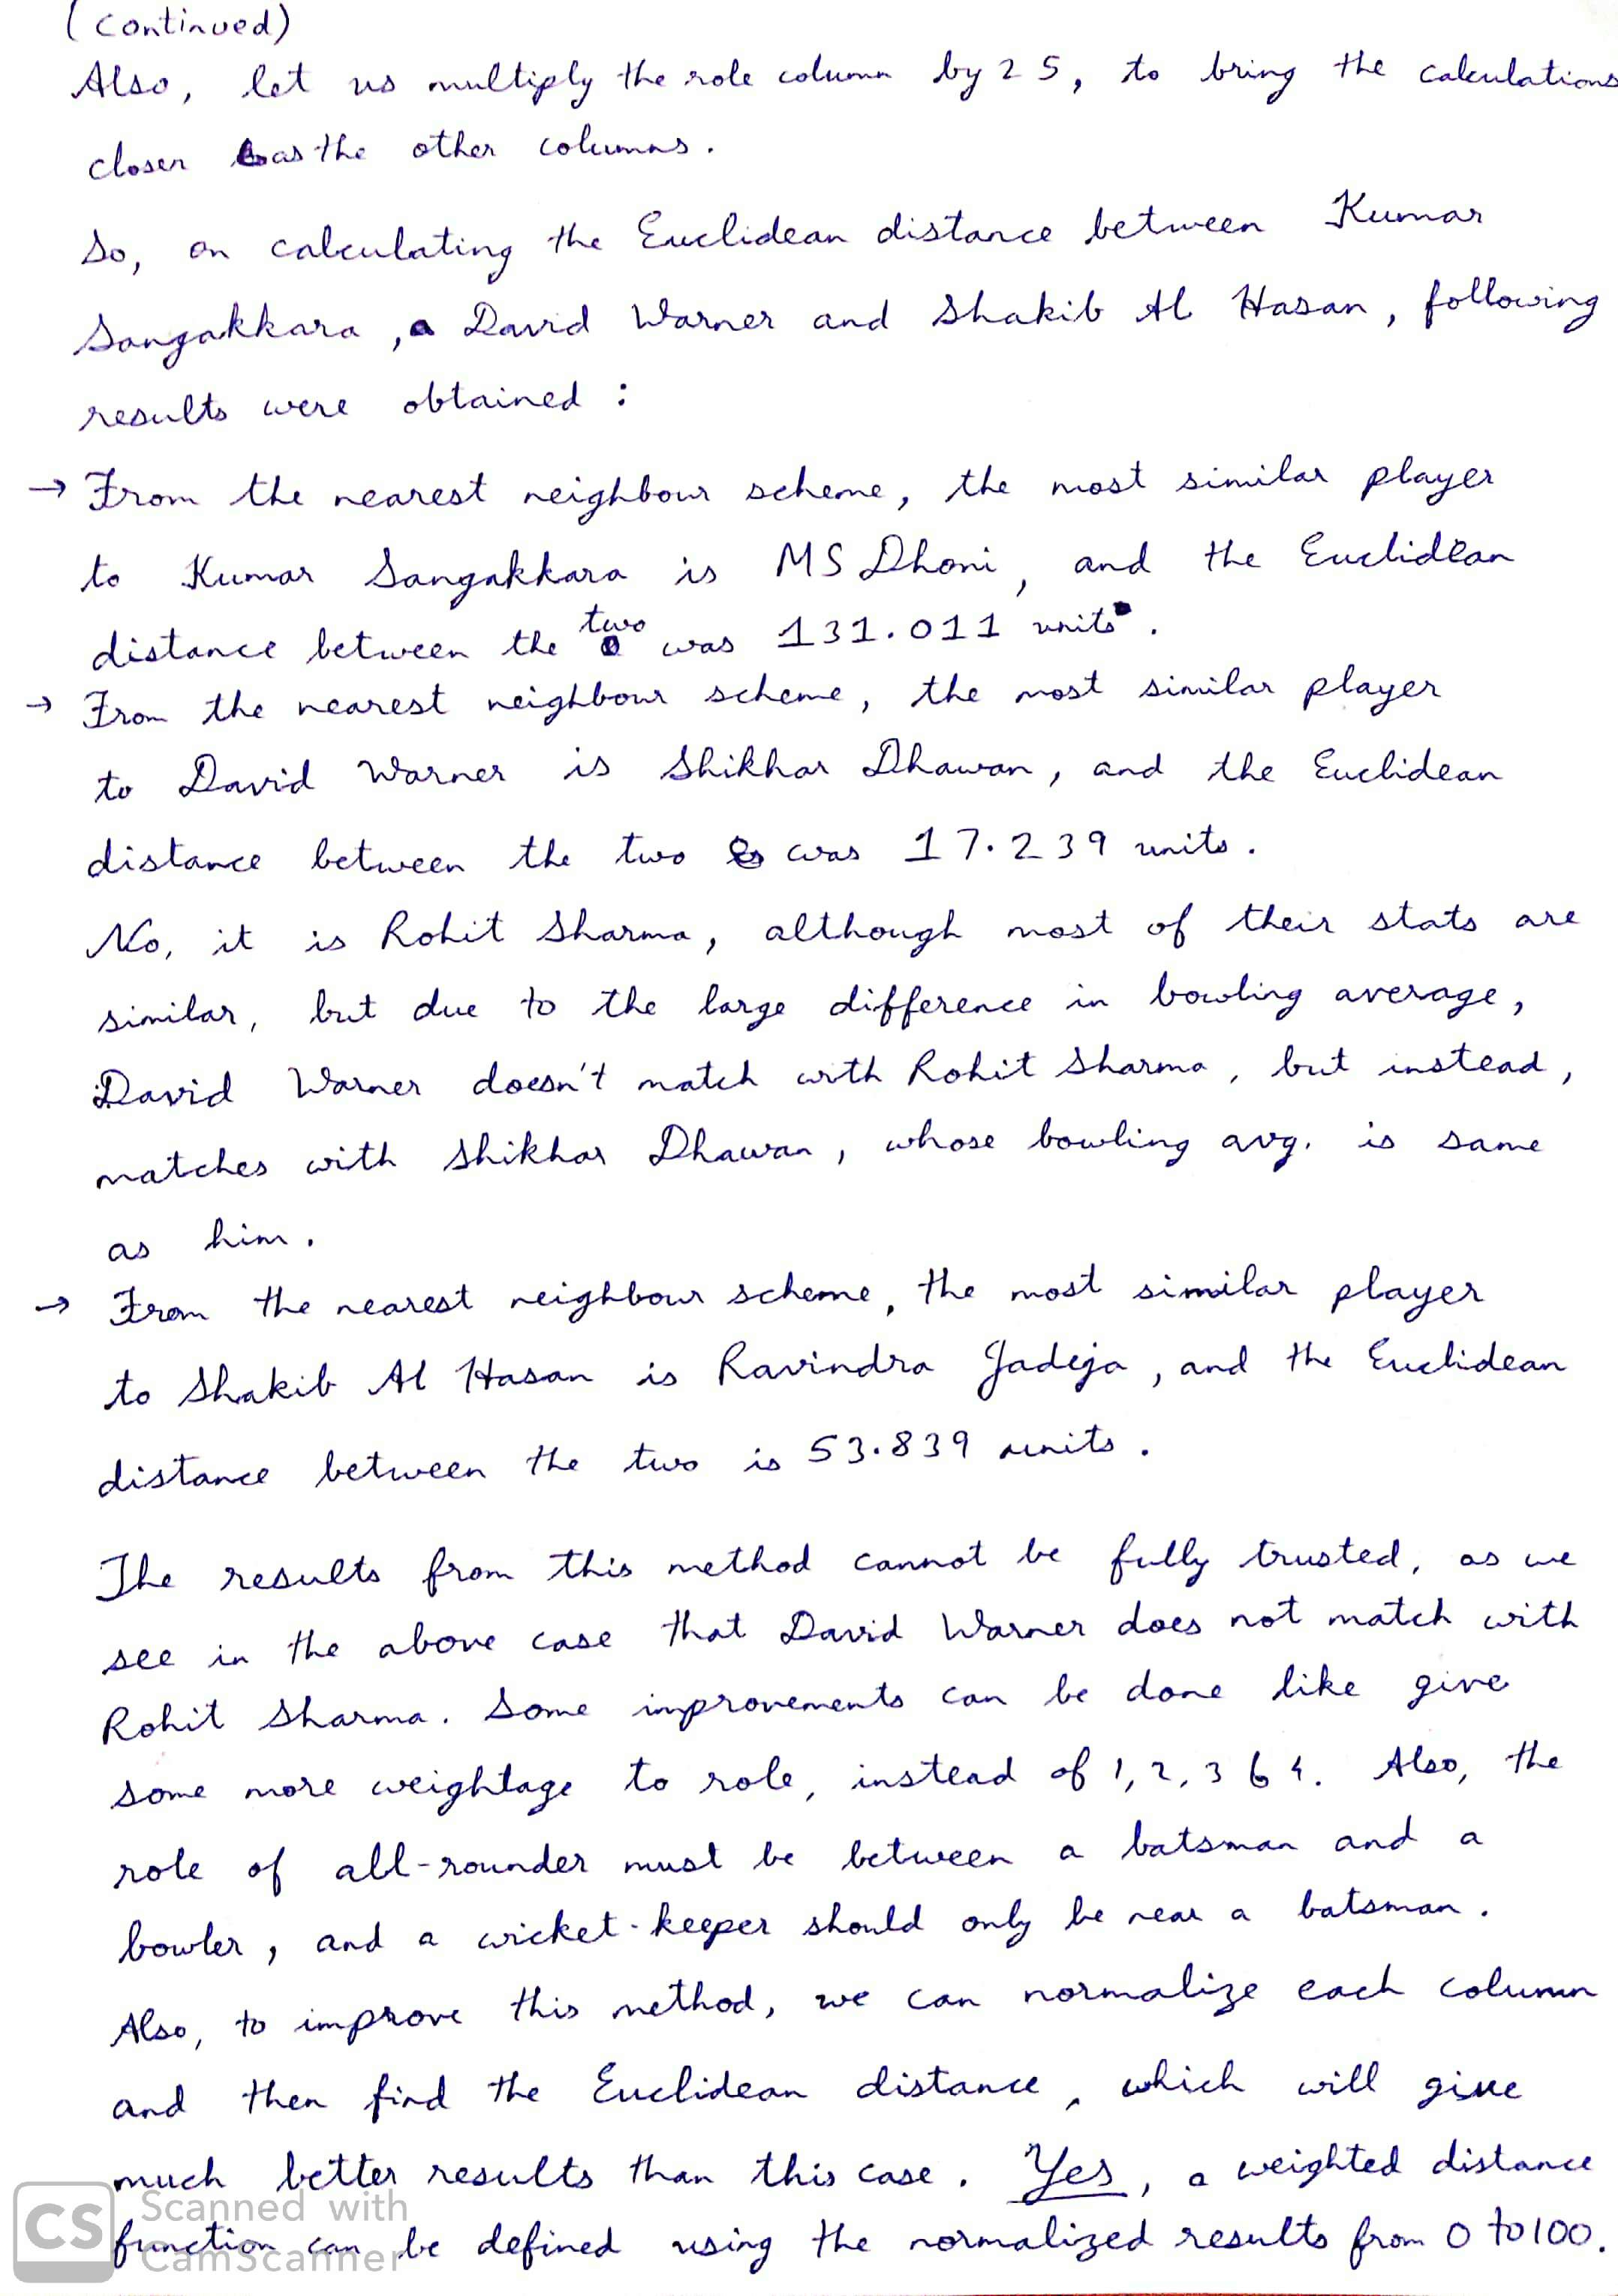 (continued)
Also, let us multiply the role column by 25, to bring the calculations
closer as the other columns.
So, on calculating the Euclidean distance between Kumar
Sangakkara, David Warner and Shakib Al Hasan, following
results were obtained :
→ From the nearest neighbour scheme, the most similar player
to Kumar Sangakkara is MS Dhoni, and the Euclidean
distance between the two was 131.011 units.
→ From the nearest neighbour scheme, the most similar player
to David Warner is Shikhar Dhawan, and the Euclidean
distance between the two was 17.239 units.
No, it is Rohit Sharma, although most of their stats are
similar, but due to the large difference in bowling average,
David Warner doesn't match with Rohit Sharma, but instead,
matches with Shikhar Dhawan, whose bowling avg. is same
as him.
→ From the nearest neighbour scheme, the most similar player
to Shakib Al Hasan is Ravindra Jadeja, and the Euclidean
distance between the two is 53.839 units.
The results from this method cannot be fully trusted, as we
see in the above case that David Warner does not match with
Rohit Sharma. Some improvements can be done like give
some more weightage to role, instead of 1, 2, 3 & 4. Also, the
role of all-rounder must be between a batsman and a
bowler, and a wicket-keeper should only be near a batsman.
Also, to improve this method, we can normalize each column
and then find the Euclidean distance, which will give
much better results than this case. Yes, a weighted distance
function can be defined using the normalized results from 0 to 100.
CS Scanned with
CamScanner